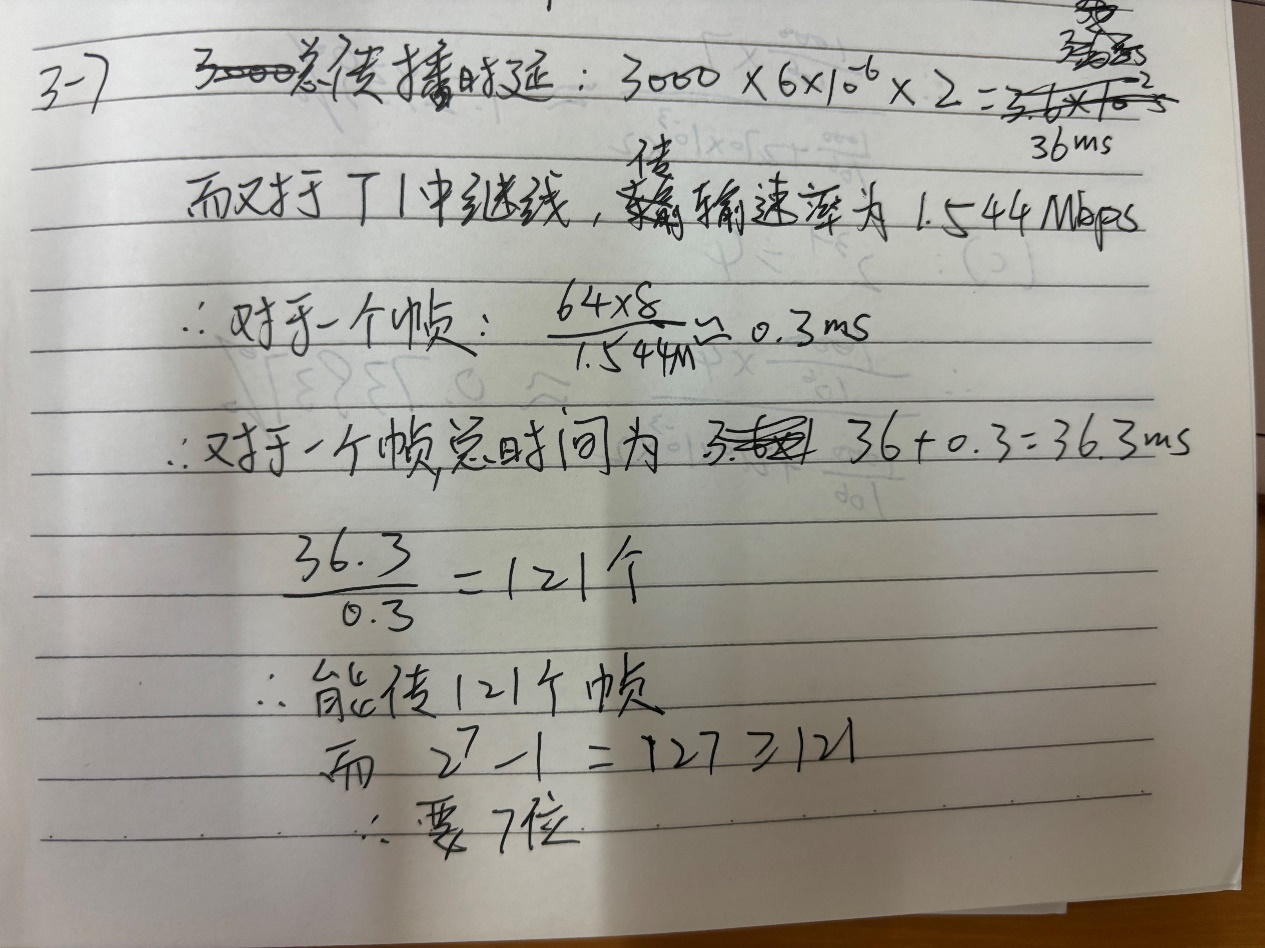 3-7 总传播时延：3000×6×10⁻⁶×2=
36ms
而对于T1中继线，传输速率为1.544Mbps
∴对于一个帧：64×8/1.544M≈0.3ms
∴对于一个帧，总时间为 36+0.3=36.3ms
36.3/0.3=121个
∴能传121个帧
而 2⁷-1=127≥121
∴要7位